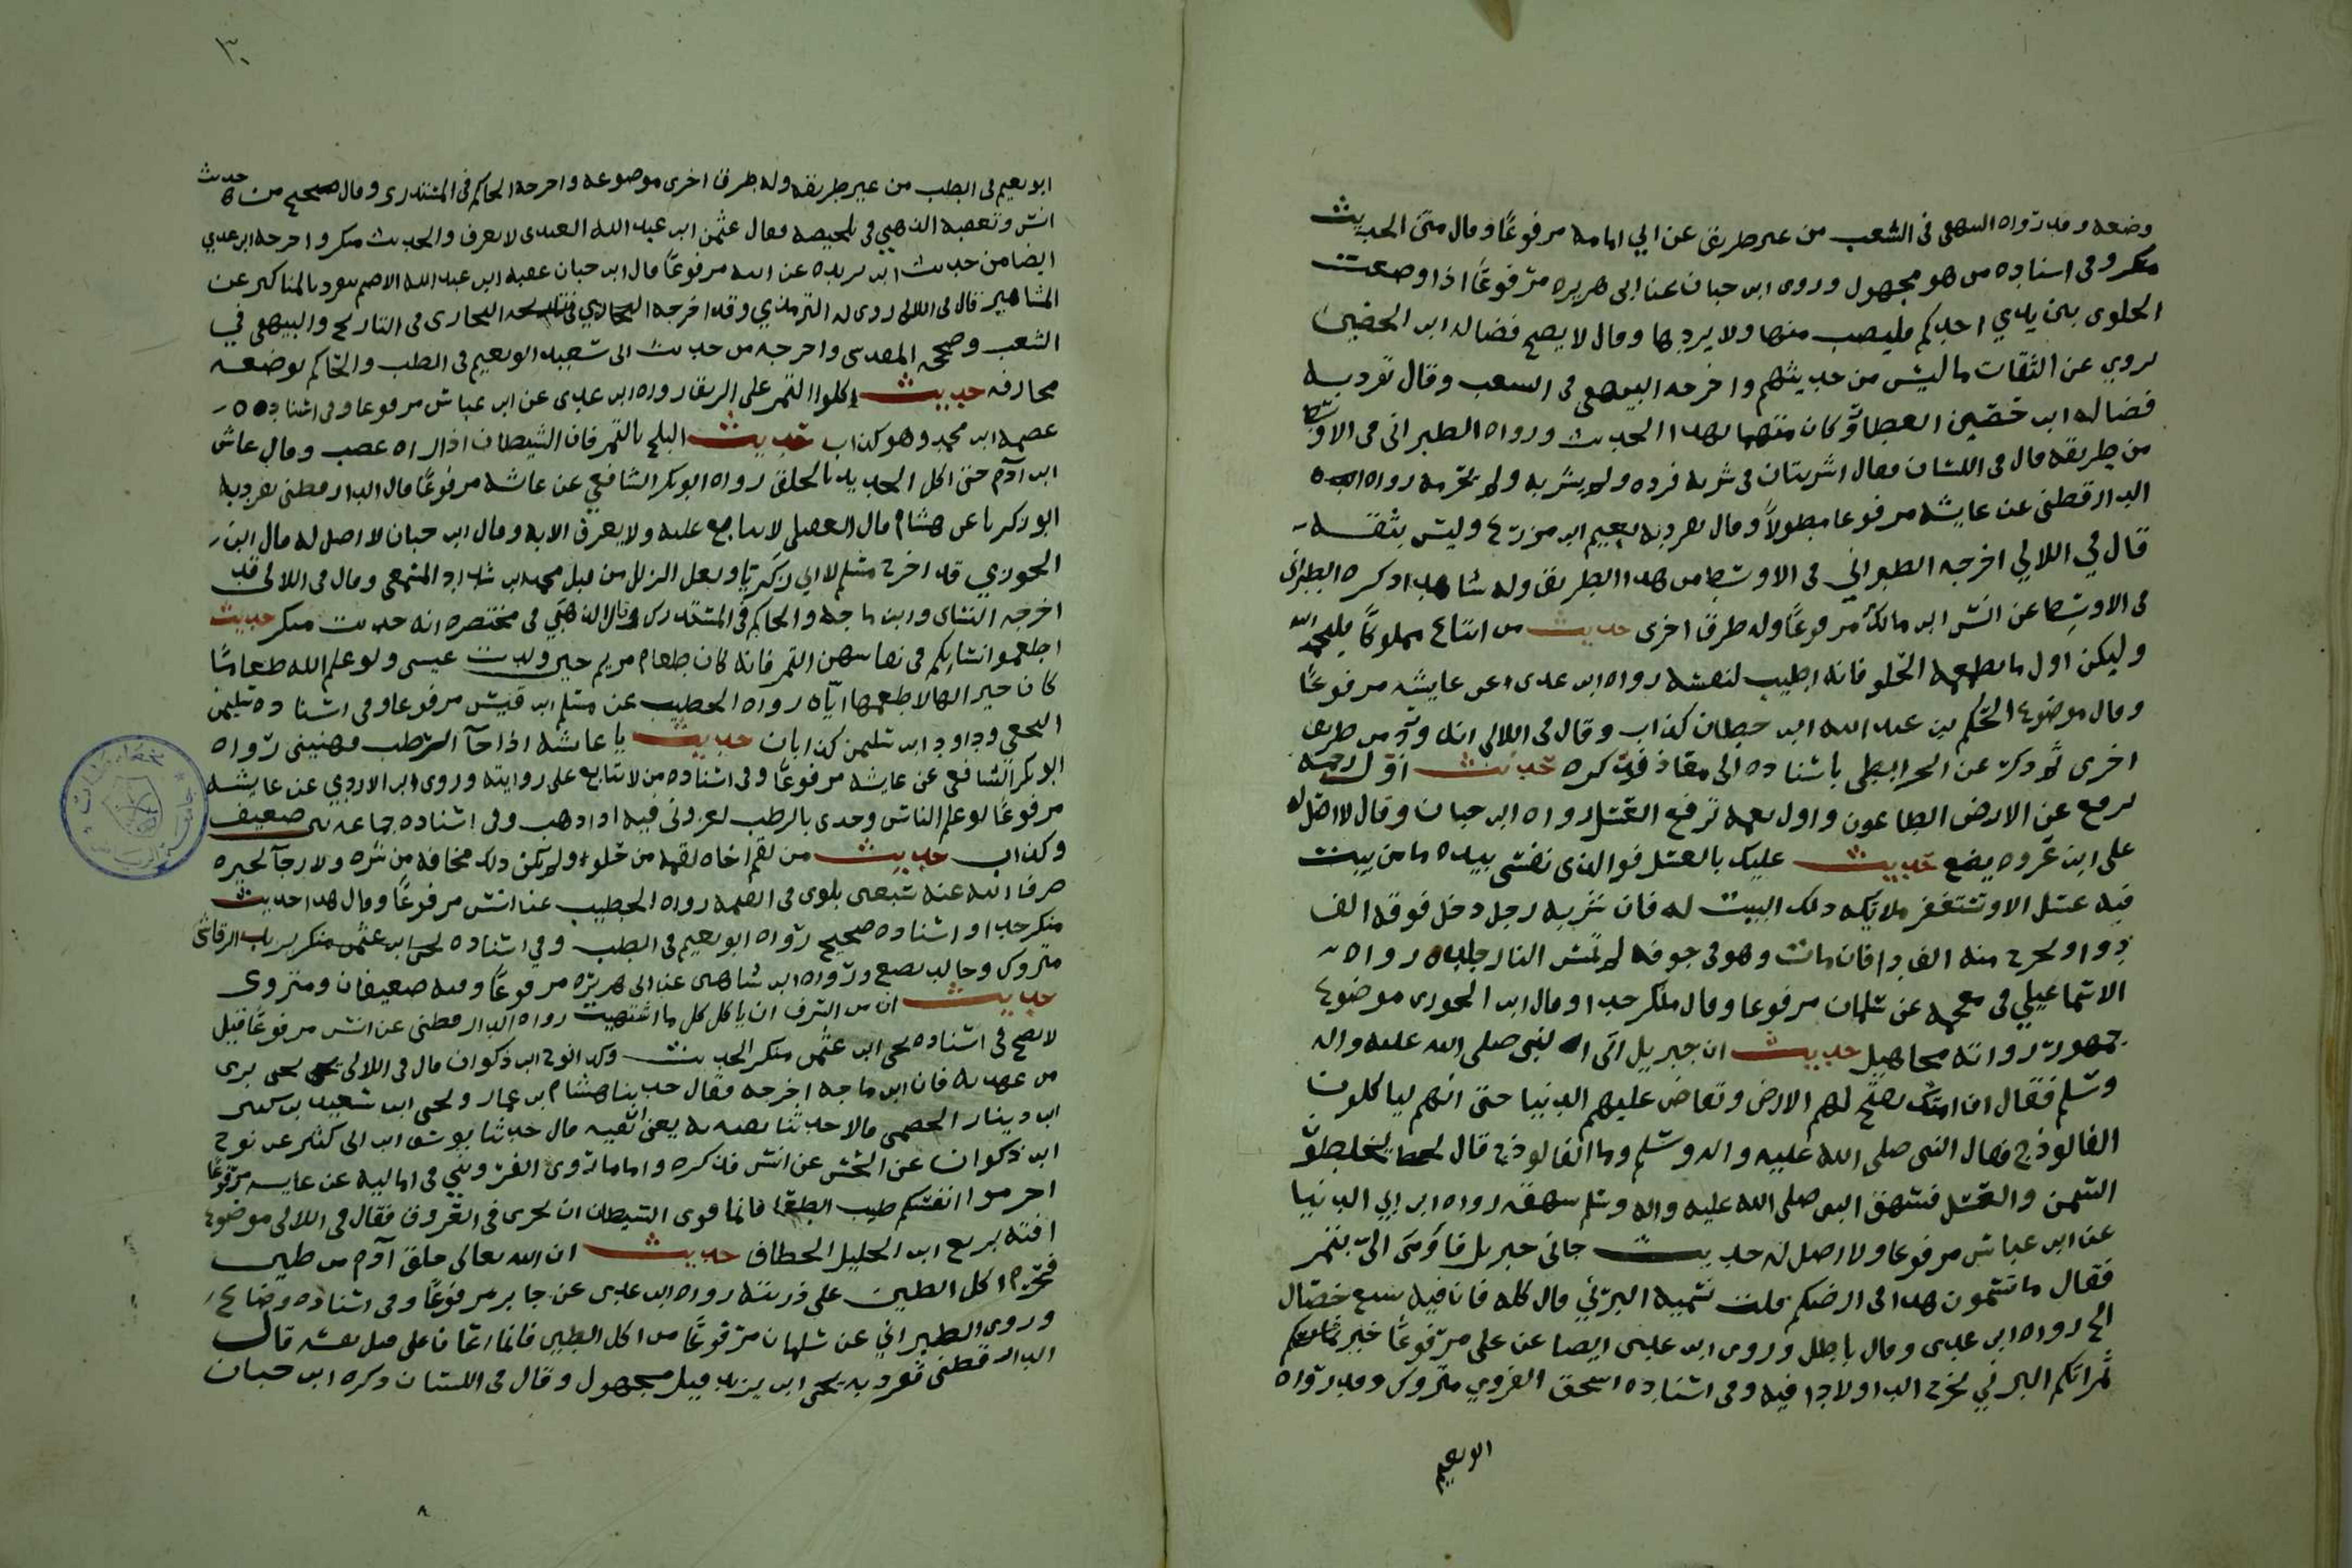 وضعه وقد رواه البيهقي في الشعب من غير طريق عن ابي امامه مرفوعًا وقال متن الحديث
منكر وفي اسناده من هو مجهول وروى ابن حبان عن ابي هريره مرفوعًا اذا وضعت
الحلوى بين يدي احدكم فليصب منها ولا يردها وقال لا يصح فضاله ابن الحصين
يروي عن الثقات ما ليس من حديثهم واخرجه البيهقي في الشعب وقال تفرد به
فضاله ابن حصين العطار وكان متهما بهذا الحديث ورواه الطبراني في الاوسط
من طريقه قال في اللسان فقال اشربتان في شربه فرده ولم يشربه ولم يحرمه رواه
الدارقطني عن عايشه مرفوعا مطولاً وقال تفرد به نعيم ابن مورع وليس بثقه
قال في اللالي اخرجه الطبراني في الاوسط من هذا الطريق وله شاهد اذكره الطبراني
في الاوسط عن انس ابن مالك مرفوعًا وله طرق اخرى حديث من ابتاع مملوكًا فليحمد الله
وليكن اول ما يطعمه الحلو فانه اطيب لنفسه رواه ابن عدي عن عايشه مرفوعًا
وقال موضوع الحكم بن عبد الله ابن خطاف كذاب وقال في اللالي انه ورد من طريق
اخرى ثم ذكره عن الخرايطي باسناده الى معاذ فذكره حديث اول رحمه
ترفع عن الارض الطاعون واول نعمه ترفع العسل رواه ابن حبان وقال لا اصل له
علي ابن عروه يضع حديث عليك بالعسل فوالذي نفسي بيده ما من بيت
فيه عسل الا وتستغفر ملايكه ذلك البيت له فان شربه رجل دخل جوفه الف
دوا ويخرج منه الف دا فان مات وهو في جوفه لم تمس النار جلده رواه
الاسماعيلي في معجمه عن سلمان مرفوعا وقال منكر جدا وقال ابن الجوزي موضوع
جمهور رواته مجاهيل حديث ان جبريل اتى النبي صلى الله عليه واله
وسلم فقال ان امتك تفتح لهم الارض وتفاض عليهم الدنيا حتى انهم لياكلون
الفالوذج فقال النبي صلى الله عليه واله وسلم وما الفالوذج قال يخلطون
السمن والعسل فشهق النبي صلى الله عليه واله وسلم شهقه رواه ابن ابي الدنيا
عن ابن عباس مرفوعا ولا اصل له حديث جاني جبريل فاومى الي بتمر
فقال ما تسمون هذا في ارضكم قلت نسميه البرني قال كله فان فيه سبع خصال
الخ رواه ابن عدي وقال باطل وروى ابن عدي ايضا عن علي مرفوعًا خير
تمراتكم البرني يخرج الدا ولا دا فيه وفي اسناده اسحق الفروي متروك وقد رواه
ابو نعيم
٣٠
ابو نعيم في الطب من غير طريقه وله طرق اخرى موضوعه واخرجه الحاكم في المستدرك وقال صحيح من حديث
انس وتعقبه الذهبي في تلخيصه فقال عثمن ابن عبد الله العبدي لا يعرف والحديث منكر واخرجه ابن عدي
ايضا من حديث ابن بريده عن ابيه مرفوعًا قال ابن حبان عقبه ابن عبد الله الاصم ينفرد بالمناكير عن
المشاهير قال في اللالي روى له الترمذي وقد اخرجه البخاري في التاريخ والبيهقي في
الشعب وصححه المقدسي واخرجه من حديث ابي سعيد ابو نعيم في الطب والحاكم بوضعه
مجازفه حديث كلوا التمر على الريق رواه ابن عدي عن ابن عباس مرفوعا وفي اسناده
عصمه ابن محمد وهو كذاب حديث البلح بالتمر فان الشيطان اذا راه غضب وقال عاش
ابن ادم حتى اكل الجديد بالخلق رواه ابو بكر الشافعي عن عايشه مرفوعًا قال الدارقطني تفرد به
ابو زكريا عن هشام قال العقيلي لا يتابع عليه ولا يعرف الا به وقال ابن حبان لا اصل له قال ابن
الجوزي قد اخرج مسلم لابي زكريا ولعل الزلل من قبل محمد ابن شداد المسمعي وقال في اللالي قد
اخرجه النساي وابن ماجه والحاكم في المستدرك وقال الذهبي في مختصره انه حديث منكر حديث
اطعموا نساءكم في نفاسهن التمر فانه كان طعام مريم حين ولدت عيسى ولو علم الله طعاما
كان خيرا لها لاطعمها اياه رواه الخطيب عن مسلم ابن قيس مرفوعا وفي اسناده سليمن
النخعي وداود ابن سليمن كذابان حديث يا عايشه اذا جا الرطب فهنيني رواه
ابو بكر الشافعي عن عايشه مرفوعًا وفي اسناده من لا يتابع على روايته وروى ابن الازدي عن عايشه
مرفوعًا لو علم الناس وجدي بالرطب لعزوني فيه اذا ذهب وفي اسناده جماعه بين ضعيف
وكذاب حديث من لقم اخاه لقمه من حلواء ولم يكن ذلك مخافه من شره ولا رجا لخيره
صرف الله عنه سبعين بلوى في القيمه رواه الخطيب عن انس مرفوعًا وقال هذا حديث
منكر جدا واسناده صحيح رواه ابو نعيم في الطب وفي اسناده يحيى ابن عثمن منكر يزيد الرقاشي
متروك وخالد يضع ورواه ابن شاهين عن ابي هريره مرفوعًا وفيه ضعيفان ومتروك
حديث ان من السرف ان ياكل كل ما اشتهيت رواه الدارقطني عن انس مرفوعًا قيل
لا يصح في اسناده يحيى ابن عثمن منكر الحديث وكذا نوح ابن ذكوان قال في اللالي يحيى بري
من عهدته فان ابن ماجه اخرجه فقال حدثنا هشام بن عمار ويحيى ابن سعيد بن كثير
ابن دينار الحمصي قالا حدثنا بقيه يعني قال حدثنا يوسف ابن ابي كثير عن نوح
ابن ذكوان عن الحسن عن انس فذكره واما ما روى القزويني في اماليه عن عايشه مرفوعًا
احرموا انفسكم طيب الطعام فانما قوى الشيطان ان يجري في العروق فقال في اللالي موضوع
افته بزيع ابن الخليل الخطاف حديث ان الله تعالى خلق آدم من طين
فحرم اكل الطين على ذريته رواه ابن عدي عن جابر مرفوعًا وفي اسناده وضاع
وروى الطبراني عن سلمان مرفوعًا من اكل الطين فانما اعان على قتل نفسه قال
الدارقطني تفرد به يحيى ابن يزيد قيل مجهول وقال في اللسان ذكره ابن حبان
٨